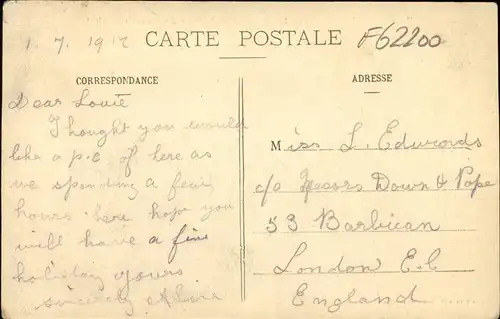 1.7.191
CARTE POSTALE
F62200
CORRESPONDANCE
Dear Louie
Thought you would
like a p.c of here as
we spending a few
hours here hope you
will have a fine
holiday yours
sincerely
ADRESSE
Miss L. Edwards
c/o Down & Pope
53 Barbican
London E.C
England